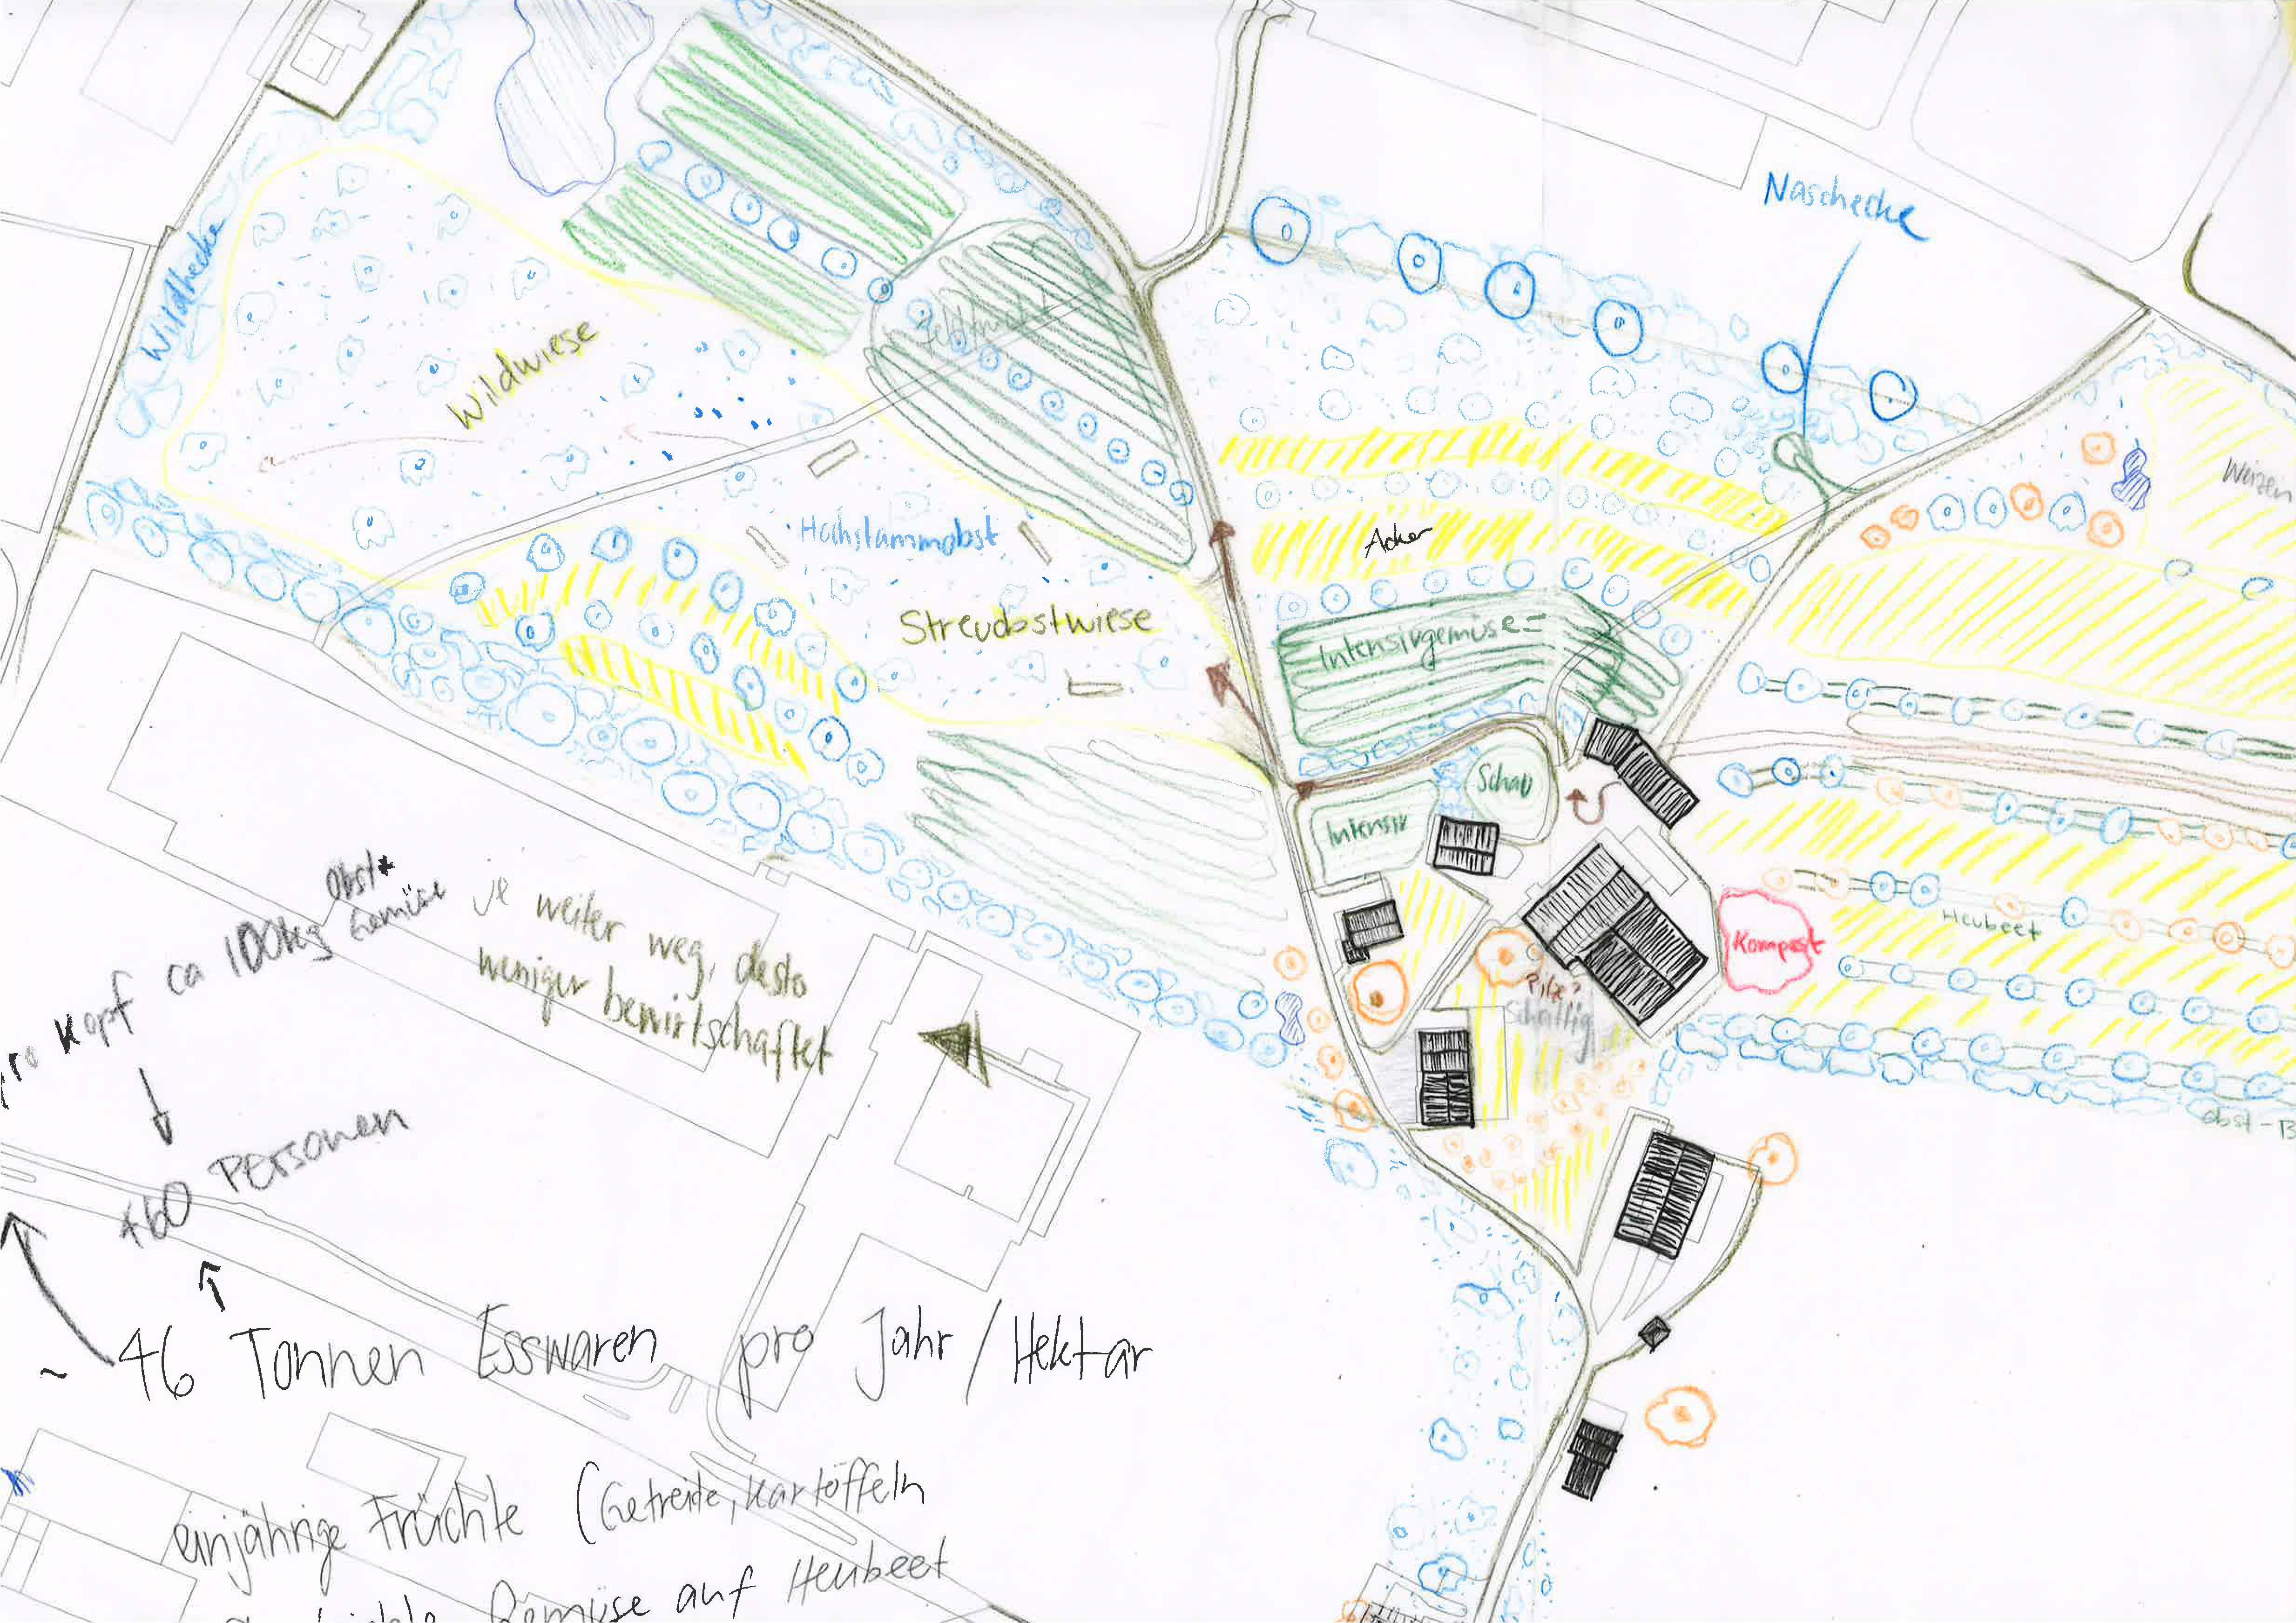 Naschecke
Wildhecke
Wildwiese
Weizen
Hochstammobst
Acker
Streuobstwiese
Intensivgemüse=
Schau
Intensiv
Obst+
Gemüse
pro Kopf ca 100kg
je weiter weg, desto
weniger bewirtschaftet
Heubeet
Kompost
Pilze?
Schattig
460 Personen
obst-B
~ 46 Tonnen Esswaren pro Jahr/Hektar
einjährige Früchte (Getreide, Kartoffeln
Gemüse auf Heubeet